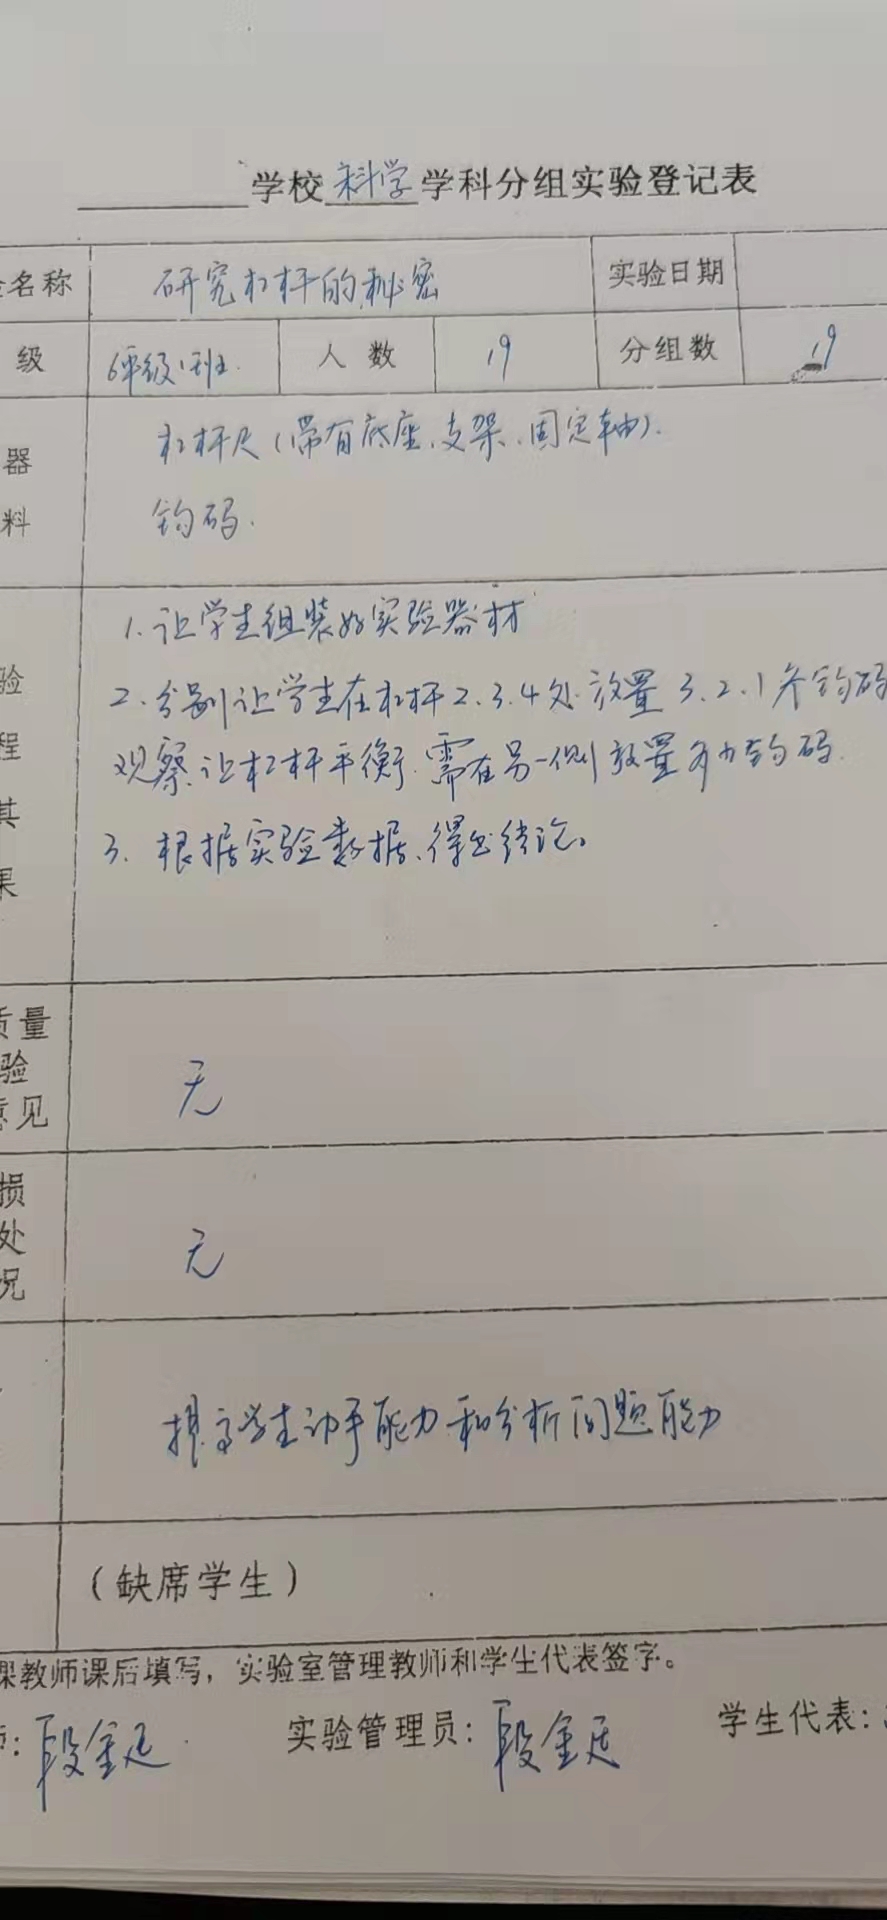 学校科学学科分组实验登记表
名称 研究杠杆的秘密 实验日期
级 6年级1班 人数 19 分组数 19
器 杠杆尺(带有底座、支架、固定轴).
料 钩码.
1. 让学生组装好实验器材
验 2. 分别让学生在杠杆2.3.4处放置3.2.1个钩码
程 观察让杠杆平衡 需在另一侧放置多少钩码.
其 3. 根据实验数据、得出结论。
果
质量
验 无
意见
损
处 无
况
提高学生动手能力和分析问题能力
(缺席学生)
课教师课后填写,实验室管理教师和学生代表签字。
师:段金廷 实验管理员:段金廷 学生代表: